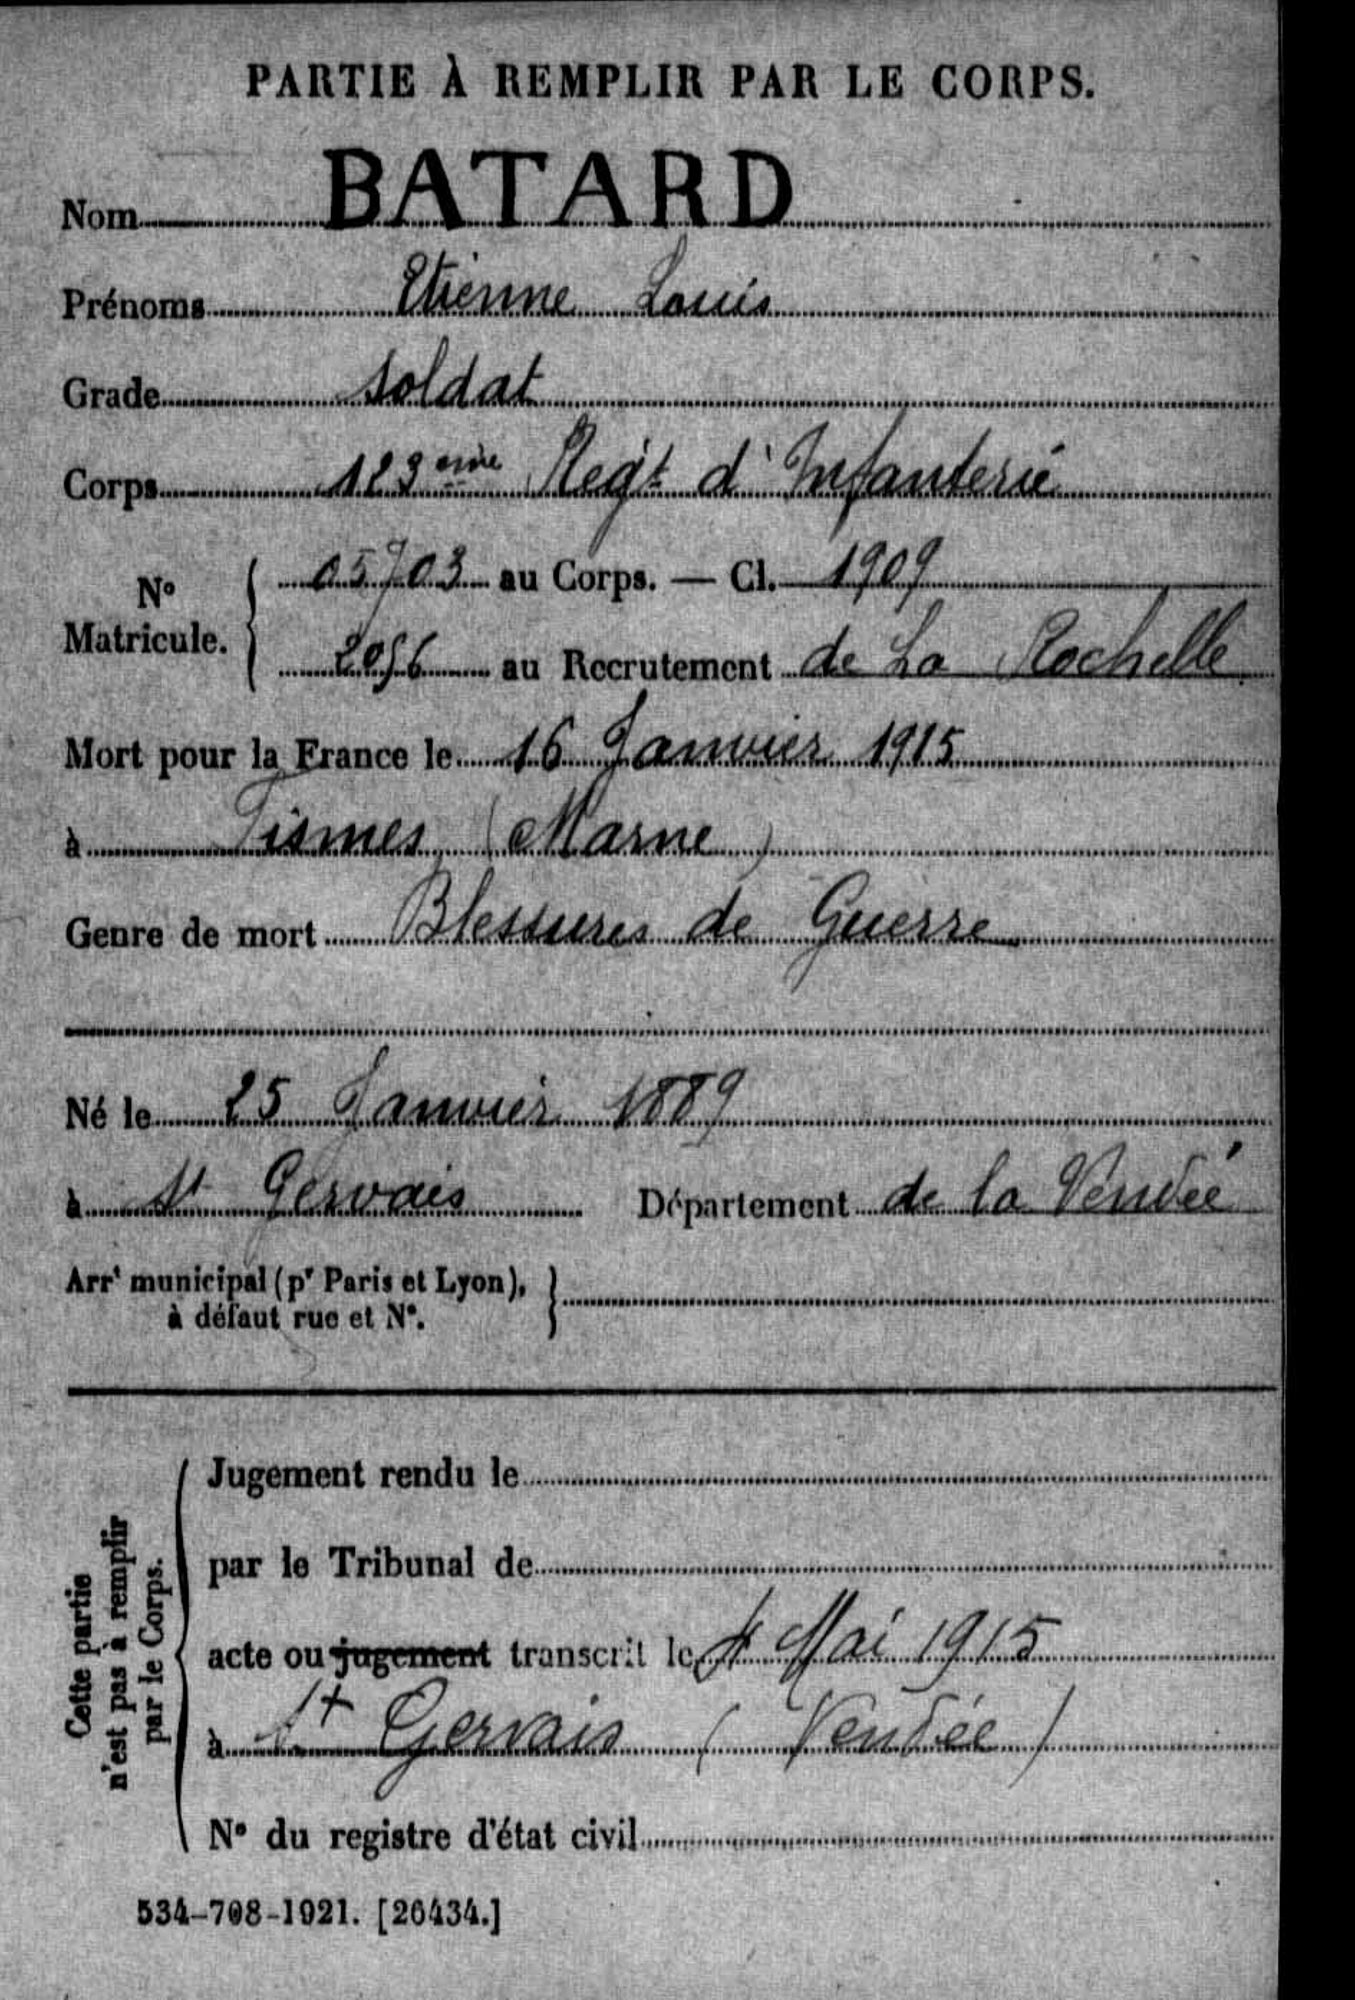 PARTIE À REMPLIR PAR LE CORPS.
Nom BATARD
Prénoms Etienne Louis
Grade soldat
Corps 123ème Regt d'Infanterie
No Matricule. { 05703 au Corps. — Cl. 1909
2056 au Recrutement de La Rochelle
Mort pour la France le 16 Janvier 1915
à Fismes (Marne)
Genre de mort Blessures de Guerre
Né le 25 Janvier 1889
à St Gervais Département de la Vendée
Arrt municipal (pr Paris et Lyon),
à défaut rue et No.
Cette partie
n'est pas à remplir
par le Corps.
Jugement rendu le
par le Tribunal de
acte ou jugement transcrit le 4 Mai 1915
à St Gervais (Vendée)
No du registre d'état civil
534-708-1921. [26434.]